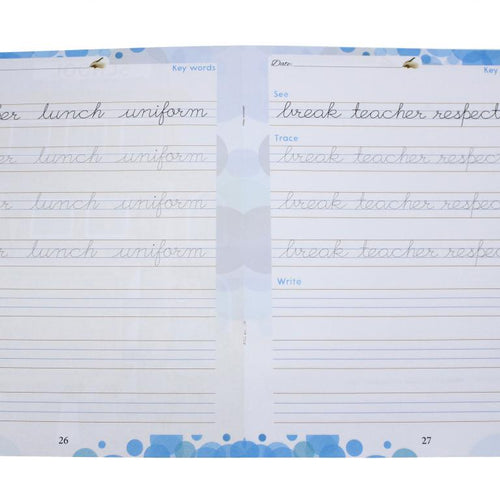 Key words
lunch uniform
lunch uniform
lunch uniform
lunch uniform
26
Date:
Key
See
break teacher respect
Trace
break teacher respect
break teacher respect
break teacher respect
Write
27